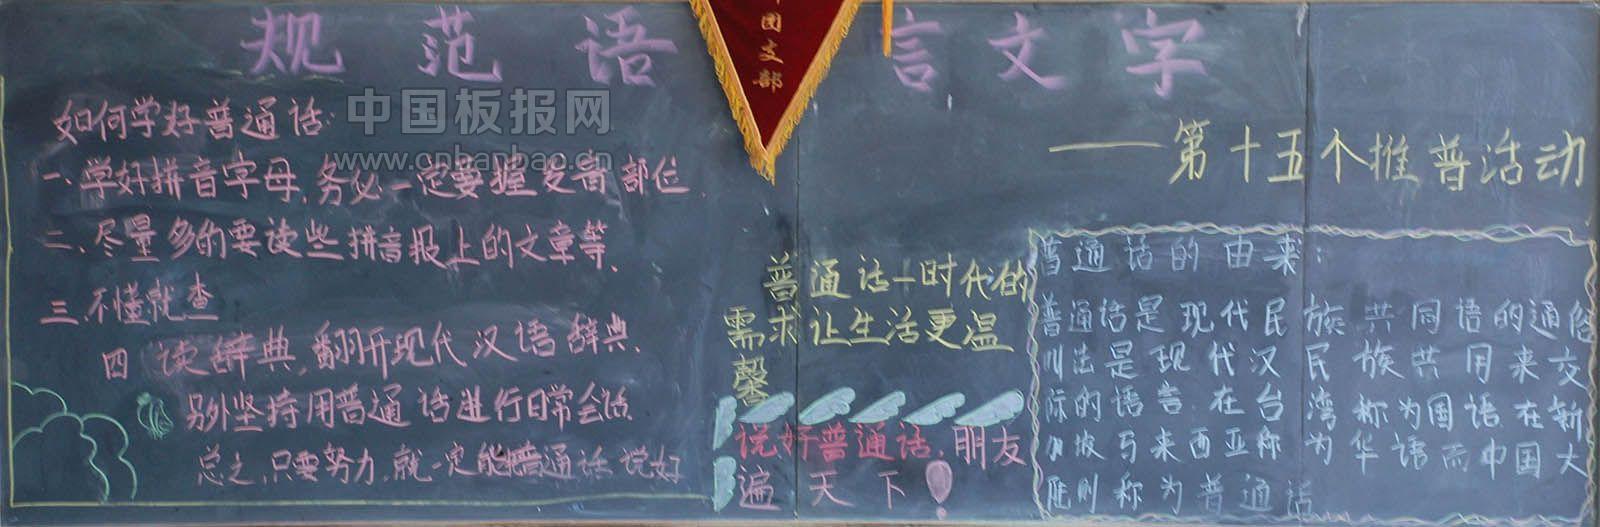 规范语言文字
团支部
中国板报网
www.cnbanbao.cn
——第十五个推普活动
如何学好普通话:
一、学好拼音字母,务必一定要握发音部位.
二、尽量多的要读些拼音报上的文章等、
三、不懂就查
四 读辞典,翻开现代汉语辞典.
别外坚持用普通话进行日常会话.
总之,只要努力,就一定能把普通话说好
普通话—时代的
需求让生活更温
馨
说好普通话,朋友
遍天下!
普通话的由来:
普通话是现代民族共同语的通俗
叫法是现代汉民族共用来交
际的语言.在台湾称为国语.在新
加坡马来西亚称为华语而中国大
陆则称为普通话